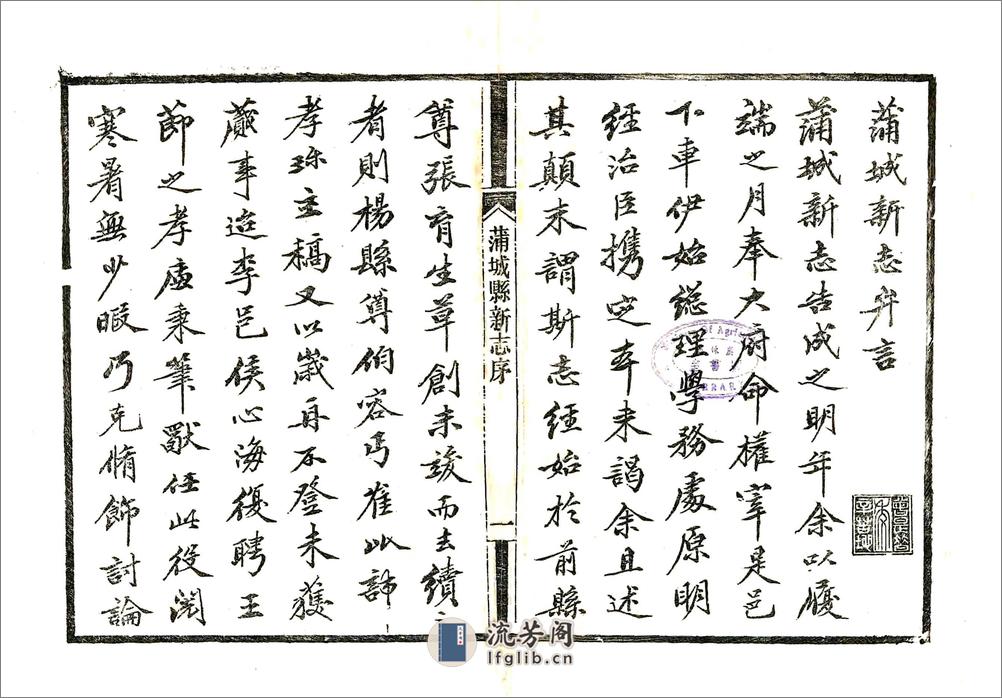 蒲城新志弁言
蒲城新志告成之明年余以履
端之月奉大府命權宰是邑
下車伊始總理學務處原明
經治臣攜是本來謁余且述
其顛末謂斯志經始於前縣
蒲城縣新志序
一
尊張育生草創未竣而去續之
者則楊縣尊伯容焉崔
孝廉主稿又以歲再不登未獲
蕆事迨李邑侯心海復聘王
節之孝廉秉筆獻任此役閱
寒暑無少暇乃克脩飾討論
流芳阁
lfglib.cn